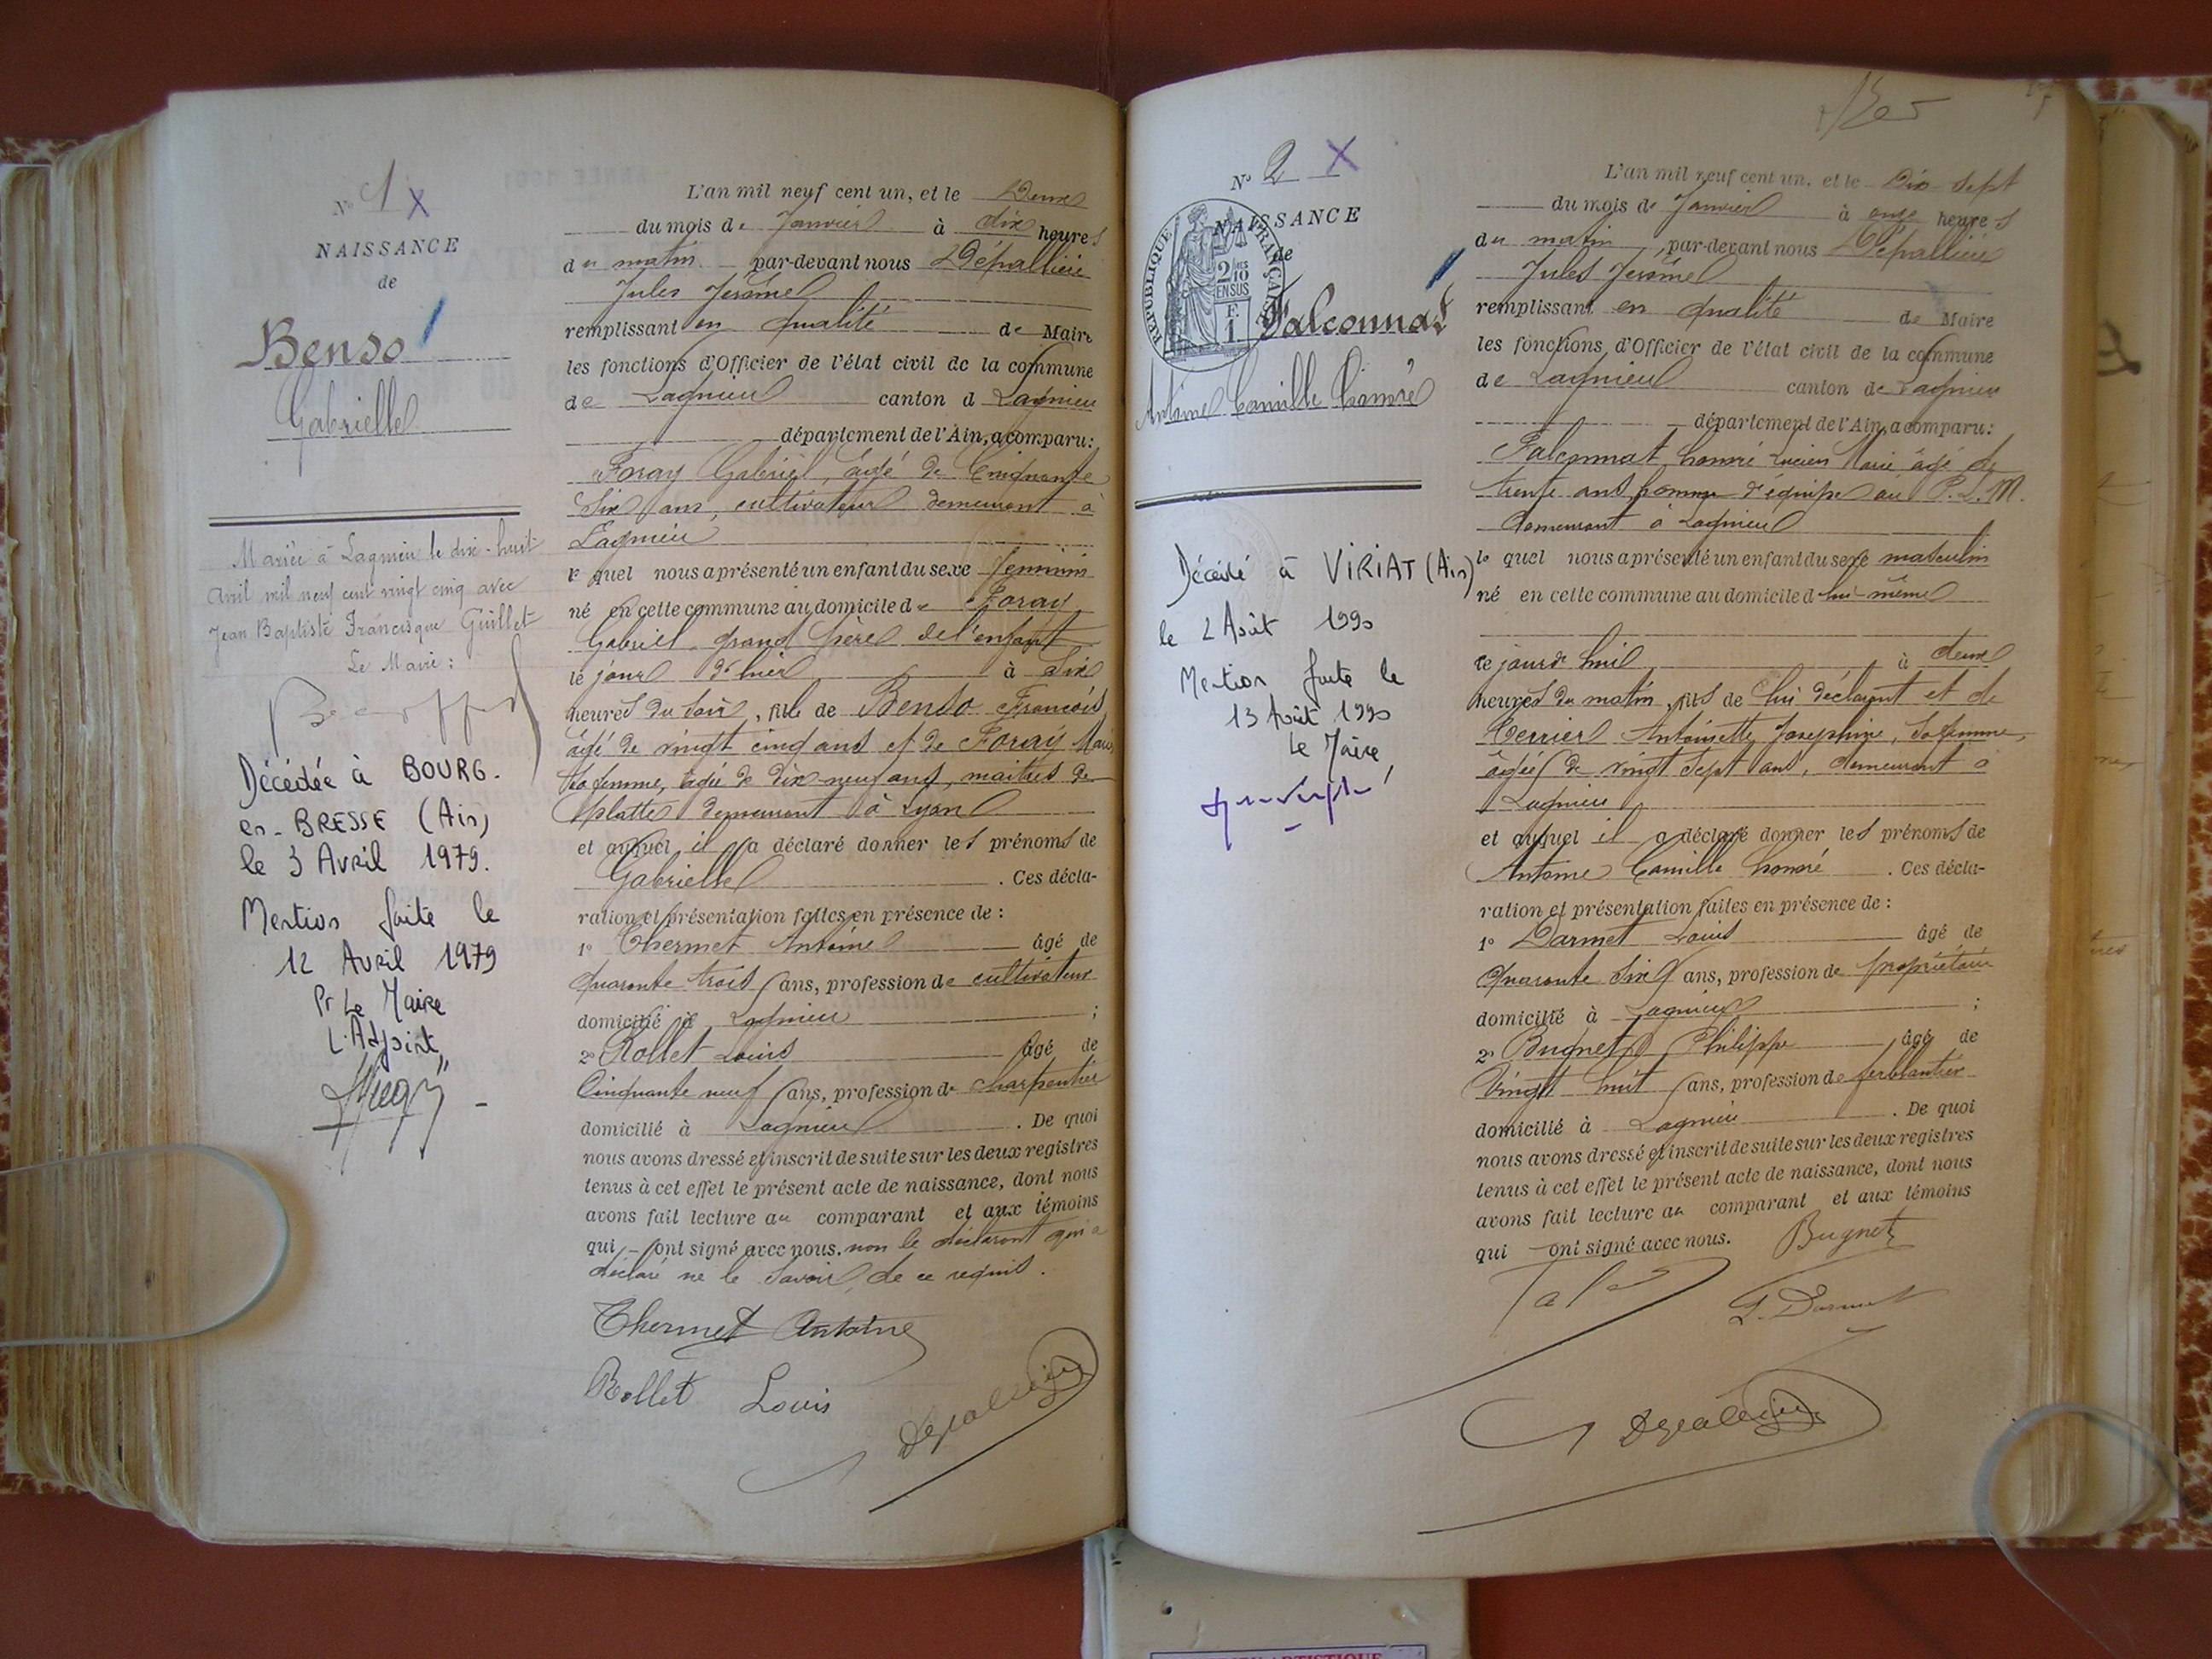 N° 1 X
NAISSANCE
de
Benso
Gabrielle
Mariée à Lagnieu le dix-huit
Avril mil neuf cent vingt cinq avec
Jean Baptiste Francisque Guillet
Le Maire :
Décédée à BOURG-
en-BRESSE (Ain)
le 3 Avril 1979.
Mention faite le
12 Avril 1979
Pr Le Maire
L'Adjoint,
L'an mil neuf cent un, et le Deux
du mois de Janvier à dix heures
du matin par-devant nous Dépallière
Jules Jérôme
remplissant en qualité de Maire
les fonctions d'Officier de l'état civil de la commune
de Lagnieu canton d Lagnieu
département de l'Ain, a comparu :
Foray Gabriel, âgé de Cinquante
Six ans, cultivateur demeurant à
Lagnieu
le quel nous a présenté un enfant du sexe féminin
né en cette commune au domicile de Foray
Gabriel grand père de l'enfant
le jour d'hier à Six
heures du soir, fille de Benso François
âgé de vingt cinq ans et de Foray Marie
sa femme, âgée de dix-neuf ans, maitres de
platte demeurant à Lyon
et auquel il a déclaré donner les prénoms de
Gabrielle . Ces décla-
ration et présentation faites en présence de :
1° Thermet Antoine âgé de
quarante trois ans, profession de cultivateur
domicilié à Lagnieu ;
2° Rollet Louis âgé de
Cinquante neuf ans, profession de charpentier
domicilié à Lagnieu . De quoi
nous avons dressé et inscrit de suite sur les deux registres
tenus à cet effet le présent acte de naissance, dont nous
avons fait lecture au comparant et aux témoins
qui ont signé avec nous. non le déclarant qui a
déclaré ne le savoir, de ce requis.
Thermet Antoine
Rollet Louis
Depallière
N° 2 X
NAISSANCE
de
RÉPUBLIQUE FRANÇAISE
2/10
EN SUS
F.
1
Falconnat
Antoine Camille Honoré
Décédé à VIRIAT (Ain)
le 2 Août 1990
Mention faite le
13 Août 1990
Le Maire
L'an mil neuf cent un, et le Dix-Sept
du mois de Janvier à onze heures
du matin, par-devant nous Dépallière
Jules Jérôme
remplissant en qualité de Maire
les fonctions d'Officier de l'état civil de la commune
de Lagnieu canton de Lagnieu
département de l'Ain, a comparu :
Falconnat honoré Lucien Marie âgé de
trente ans homme d'équipe au P.L.M.
demeurant à Lagnieu
le quel nous a présenté un enfant du sexe masculin
né en cette commune au domicile d lui-même
ce jourd'hui à deux
heures du matin, fils de lui déclarant et de
Terrier Antoinette Joséphine, sa femme,
âgée de vingt sept ans, demeurant à
Lagnieu
et auquel il a déclaré donner les prénoms de
Antoine Camille honoré . Ces décla-
ration et présentation faites en présence de :
1° Darmet Louis âgé de
quarante six ans, profession de propriétaire
domicilié à Lagnieu ;
2° Bugnet Philippe âgé de
Vingt huit ans, profession de ferblantier
domicilié à Lagnieu . De quoi
nous avons dressé et inscrit de suite sur les deux registres
tenus à cet effet le présent acte de naissance, dont nous
avons fait lecture au comparant et aux témoins
qui ont signé avec nous. Bugnet
L. Darmet
Depallière